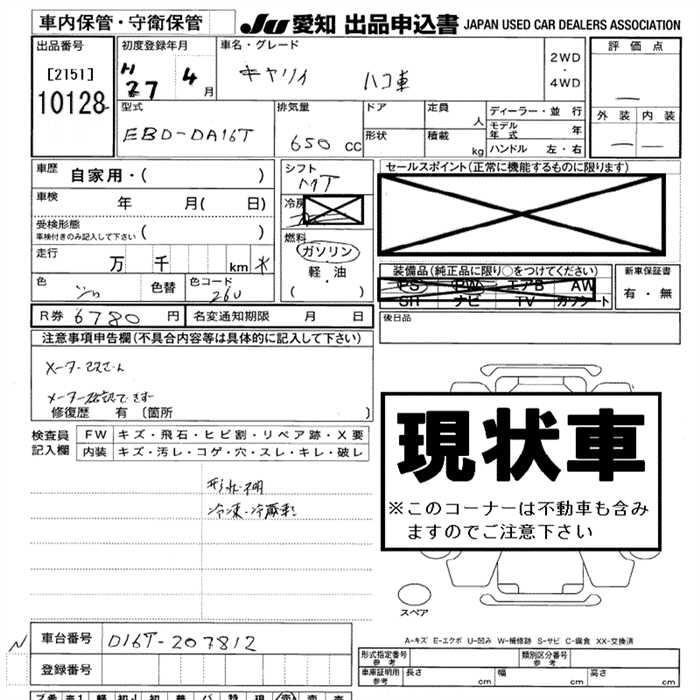 車内保管・守衛保管
JU 愛知 出品申込書 JAPAN USED CAR DEALERS ASSOCIATION
出品番号
[2151]
10128
初度登録年月
H 27 4 月
車名・グレード
キャリイ ハコ車
2WD
・
4WD
評価点
外装 内装
型式
EBD-DA16T
排気量
650 cc
ドア
形状
定員 人
積載 kg
ディーラー・並行
モデル年式 年
ハンドル 左・右
車歴 自家用・( )
車検 年 月( 日)
受検形態
車検付きのみ記入して下さい ( )
走行 万 千 km
色 色替 色コード
26U
シフト
MT
冷房
燃料
ガソリン
軽・油
( )
セールスポイント(正常に機能するものに限ります)
装備品(純正品に限り○をつけてください)
PS PW エアB AW
SR ナビ TV カワシート
新車保証書
有・無
R券 6780 円 名変通知期限 月 日
後日品
注意事項申告欄(不具合内容等は具体的に記入して下さい)
修復歴 有 〔箇所 〕
検査員記入欄
FW キズ・飛石・ヒビ割・リペア跡・X要
内装 キズ・汚レ・コゲ・穴・スレ・キレ・破レ
冷凍・冷蔵車
現状車
※このコーナーは不動車も含み
ますのでご注意下さい
スペア
A-キズ E-エクボ U-凹み W-補修跡 S-サビ C-腐食 XX-交換済
N 車台番号 D16T-207812
登録番号
形式指定番号 参考
類別区分番号 参考
車庫証明用 参考 長さ cm 幅 cm 高さ cm